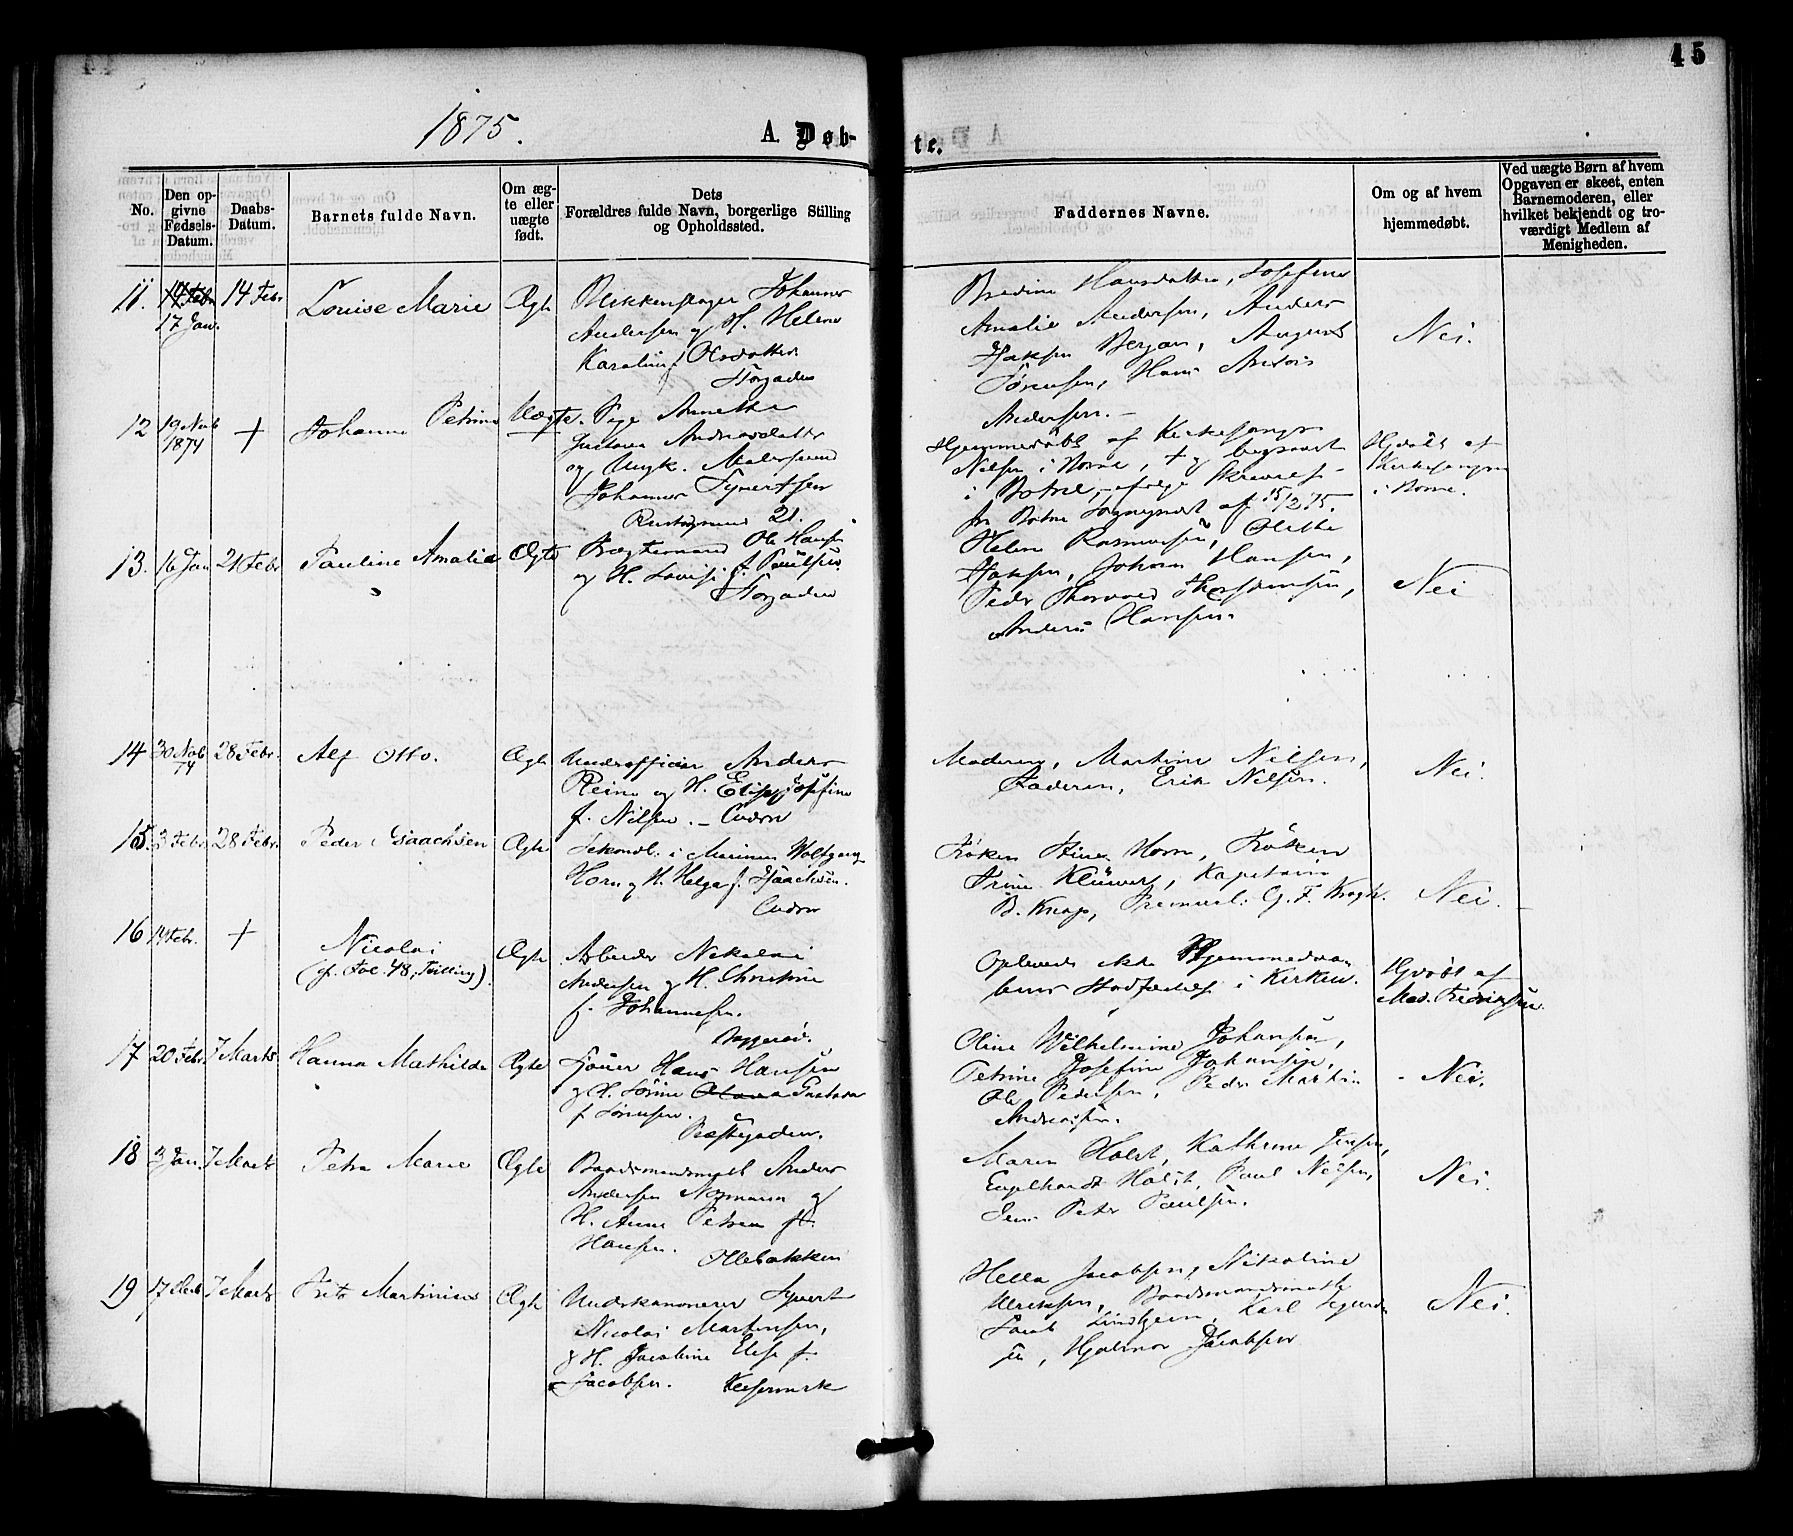 45
1875.
A. Døb-
te.
No.
Den op-
givne
Fødsels-
Datum.
Daabs-
Datum.
Barnets fulde Navn.
Om æg-
te eller
uægte
født.
Dets
Forældres fulde Navn, borgerlige Stilling
og Opholdssted.
Faddernes Navne.
Om og af hvem
hjemmedøbt.
Ved uægte Børn af hvem
Opgaven er skeet, enten
Barnemoderen, eller
hvilket bekjendt og tro-
værdigt Medlem af
Menigheden.
11. 17 Jan. 14 Febr Louise Marie Ægte
Blikkenslager Johannes
Andersen og H. Helene
Karoline Olsdatter
Storgaden
Bredine Hansdatter, Josefine
Amalie Andersen, Anders
Isaksen Bergan, August
Sørensen, Hans Anton
Andersen. -
Nei.
12 19 Novb 1874 + Johanne Petrine Uægte.
Pige Annette
Gustava Andreasdatter
og Ungk. Malersvend
Johannes Syvertsen
21.
Hjemmedøbt af Kirkesanger
Nilsen i Borre, + og begravet
i Botne, ifølge Skrivelse
fr. Botne Sognepræst af 15/2 75.
Hjdøbt af
Kirkesanger
i Borre.
13. 16 Jan 21 Febr Pauline Amalie Ægte
Ole Hansen
og H. Lovise f. Paulsen.
Storgaden
Helene Rasmussen, Olette
Isaksen, Johan Hansen,
Peder Thorvald
Anders Hansen.
Nei
14 30 Nov 74 28 Febr. Alf Otto. Ægte
Underofficier Anders
Reine og H. Elise Josefine
f. Nilsen. -
Moderen, Martine Nilsen,
Faderen, Erik Nilsen.
Nei.
15 3 Febr. 28 Febr. Peder Isaachsen Ægte
Sekondl. i Marinen Wolfgang
Horn og H. Helga f. Isaachsen.
Frøken Stina Horn, Frøken
Trine Klüwer, Kapetain
B. Knap, Premierl. G. F. Krogh.
Nei.
16 14 Febr. + Nicolai
(cf. Fol. 48, Tvilling). Ægte
Arbeider Nikolai
Andersen og H. Christine
f. Johannesen.
Oplevede ikke Hjemmedaa-
bens Stadfæstelse i Kirken.
Hjdøbt af
Mad. Fredriksen.
17 20 Febr. 7 Marts Hanna Mathilde Ægte
Hans Hansen
og H. Sørine Gustava
f. Sørensen.
Præstegaden.
Oline Wilhelmine Johansen,
Petrine Josefine Johansen,
Ole Pedersen, Peder Martin
Andreassen.
- Nei.
18 3 Jan. 7 Marts Petra Marie Ægte
Baadsmandsmath Anders
Andersen Normann og
H. Anne Petrea f.
Hansen. Olebakken
Maren Holst, Kathrine Jensen,
Engelhardt Holst, Paul Nilsen,
Jens Peter Paulsen.
Nei.
19 17 7 Marts Fritz Martinius Ægte
Underkanonerer Syvert
Nicolai Martinsen,
& H. Jacobine Elise f.
Jacobsen. Keisemark
Hella Jacobsen, Nikoline
Ulriksen, Baadsmandsmath
Jacob Lindgren, Karl
Hjalmar Jacobsen
Nei.